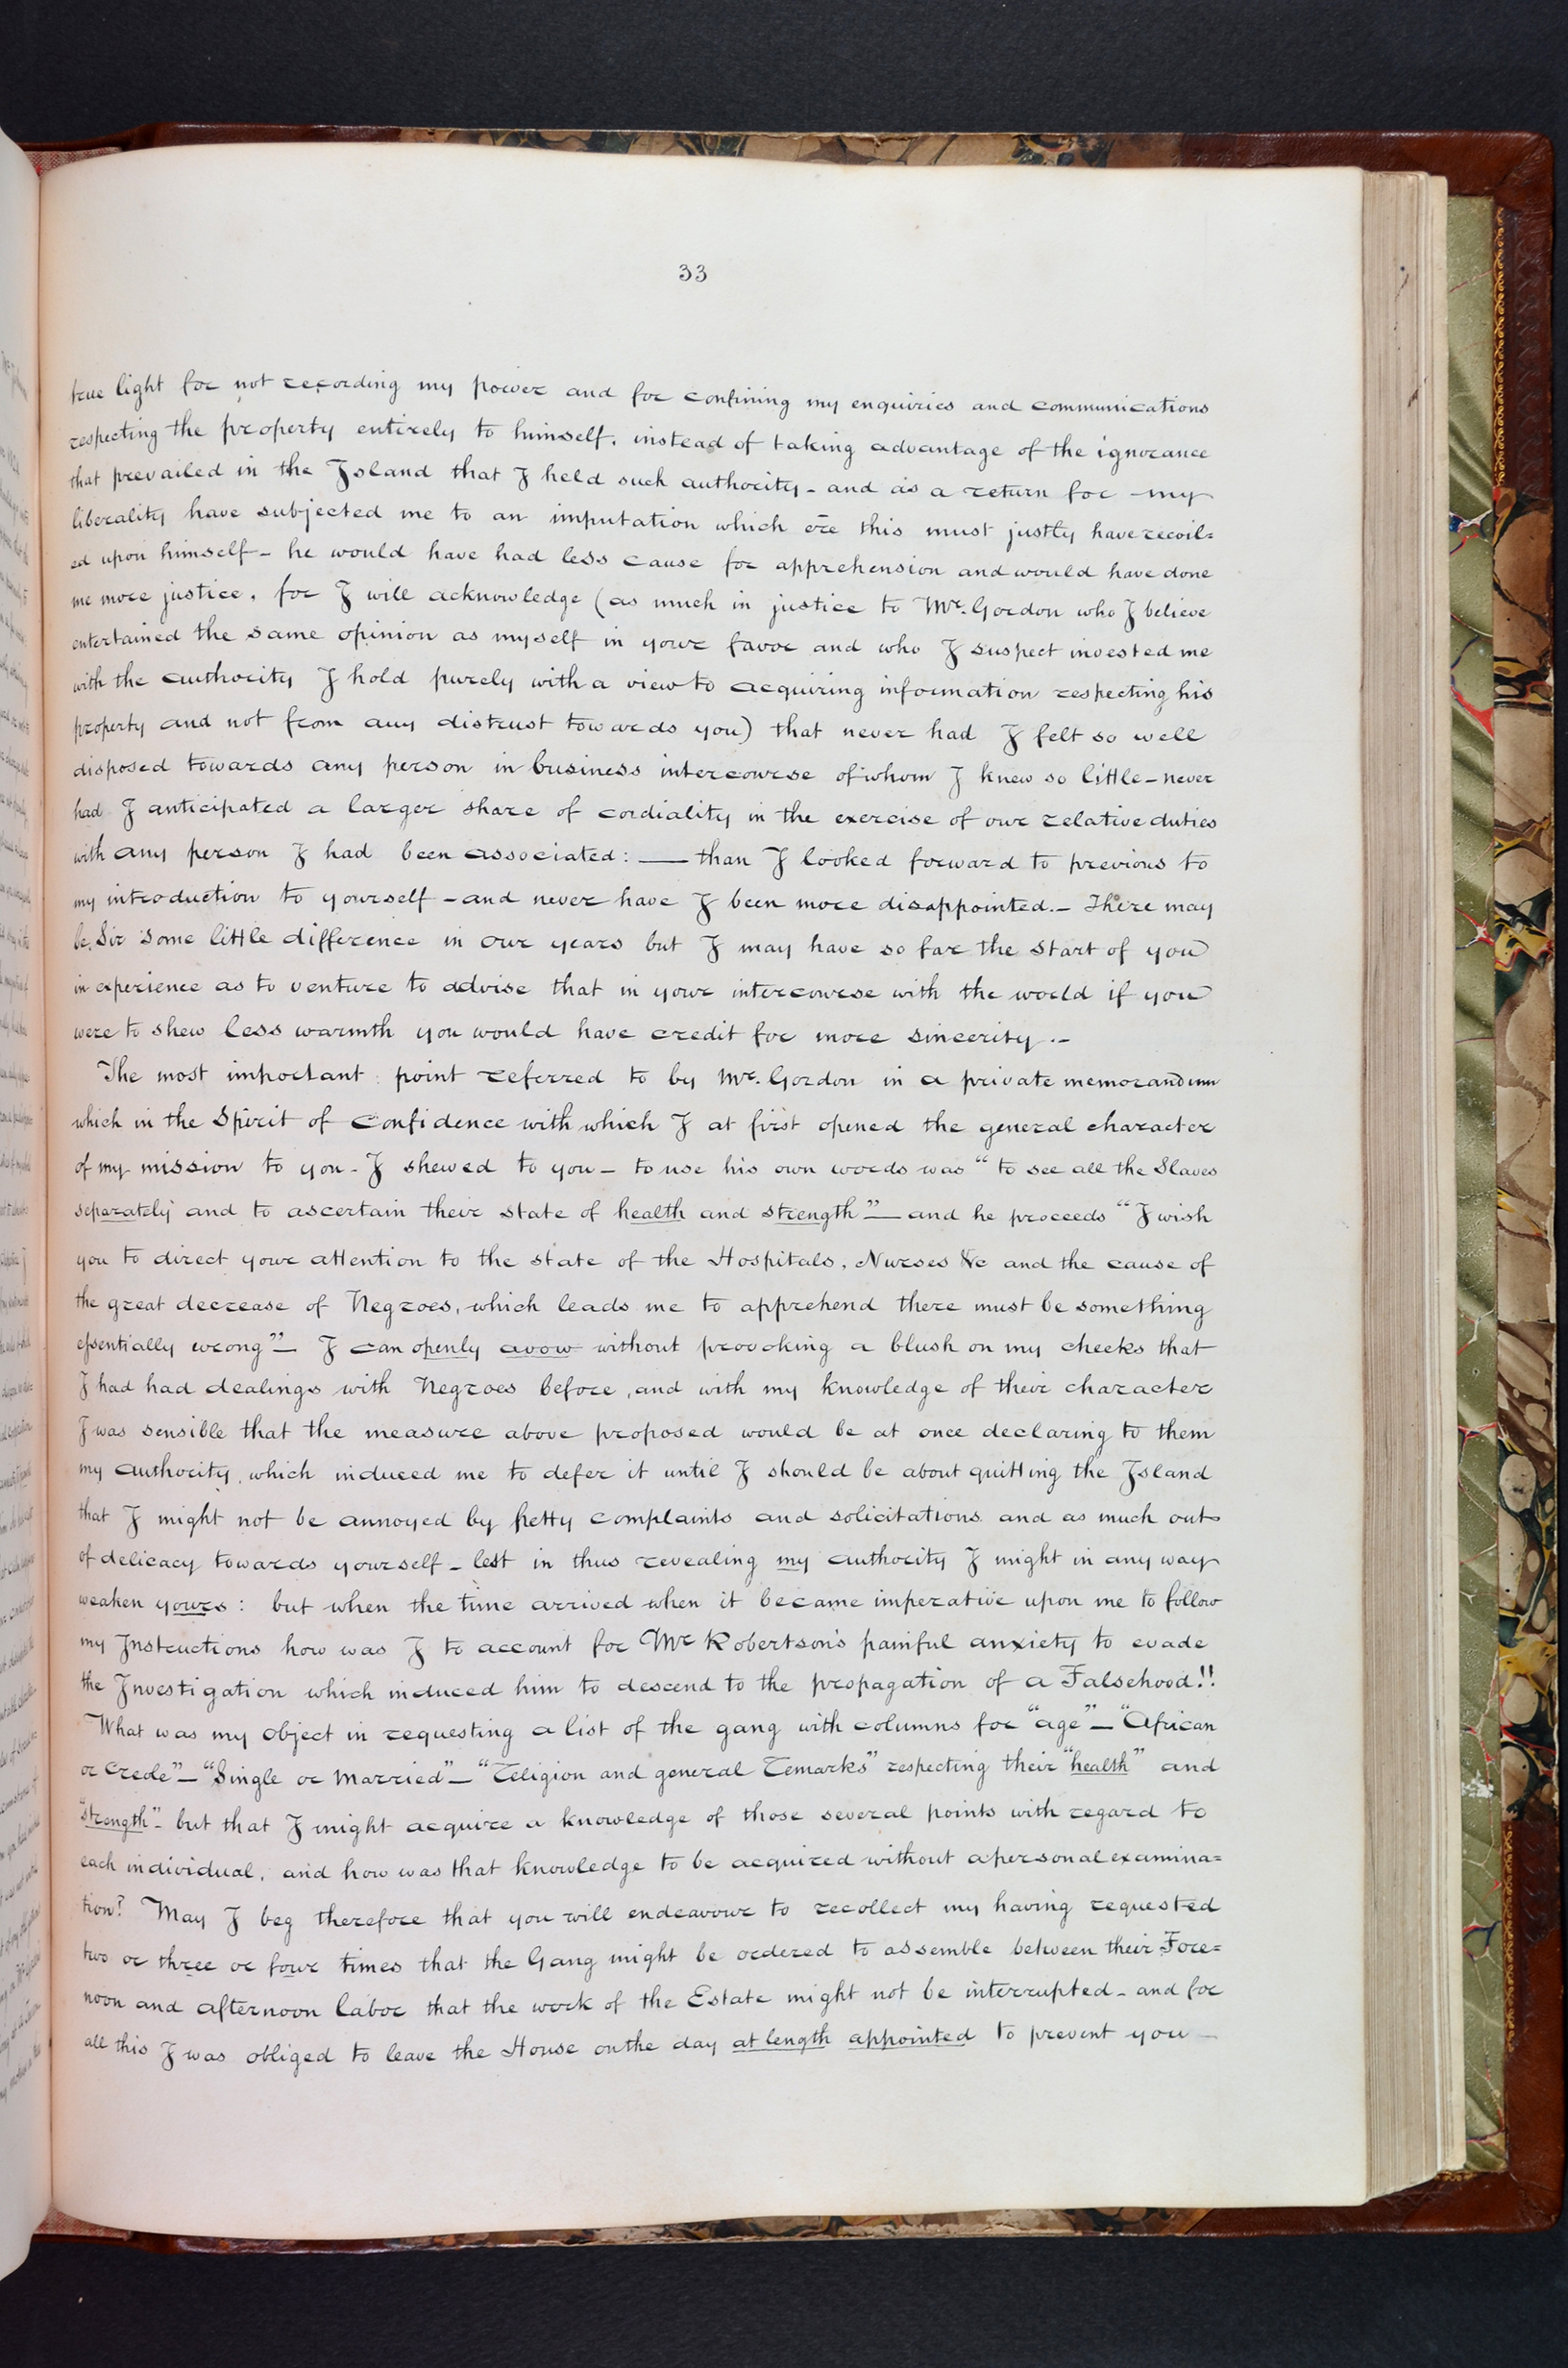 33
true light for not recording my power and for confining my enquiries and communications
respecting the property entirely to himself. instead of taking advantage of the ignorance
that prevailed in the Island that I held such authority - and as a return for my
liberality have subjected me to an imputation which ere this must justly have recoil=
ed upon himself - he would have had less cause for apprehension and would have done
me more justice. for I will acknowledge (as much in justice to Mr. Gordon who I believe
entertained the same opinion as myself in your favor and who I suspect invested me
with the authority I hold purely with a view to acquiring information respecting his
property and not from any distrust towards you) that never had I felt so well
disposed towards any person in business intercourse of whom I knew so little - never
had I anticipated a larger share of cordiality in the exercise of our relative duties
with any person I had been associated: — than I looked forward to previous to
my introduction to yourself - and never have I been more disappointed. - There may
be, Sir some little difference in our years but I may have so far the start of you
in experience as to venture to advise that in your intercourse with the world if you
were to shew less warmth you would have credit for more sincerity. -
The most important point referred to by Mr. Gordon in a private memorandum
which in the Spirit of Confidence with which I at first opened the general character
of my mission to you - I shewed to you - to use his own words was "to see all the Slaves
separately and to ascertain their state of health and strength" — and he proceeds "I wish
you to direct your attention to the state of the Hospitals, Nurses &c and the cause of
the great decrease of Negroes, which leads me to apprehend there must be something
essentially wrong" — I can openly avow without provoking a blush on my cheeks that
I had had dealings with Negroes before, and with my knowledge of their character
I was sensible that the measure above proposed would be at once declaring to them
my authority, which induced me to defer it until I should be about quitting the Island
that I might not be annoyed by petty complaints and solicitations and as much out
of delicacy towards yourself - lest in thus revealing my authority I might in any way
weaken yours: but when the time arrived when it became imperative upon me to follow
my Instructions how was I to account for Mr Robertson's painful anxiety to evade
the Investigation which induced him to descend to the propagation of a Falsehood!!
What was my object in requesting a list of the gang with columns for "age" — "African
or Creole" — "Single or Married" — "Religion and general Remarks" respecting their "health" and
"strength" - but that I might acquire a knowledge of those several points with regard to
each individual, and how was that knowledge to be acquired without a personal examina=
tion? May I beg therefore that you will endeavour to recollect my having requested
two or three or four times that the Gang might be ordered to assemble between their Fore=
noon and afternoon labor that the work of the Estate might not be interrupted - and for
all this I was obliged to leave the House on the day at length appointed to prevent you